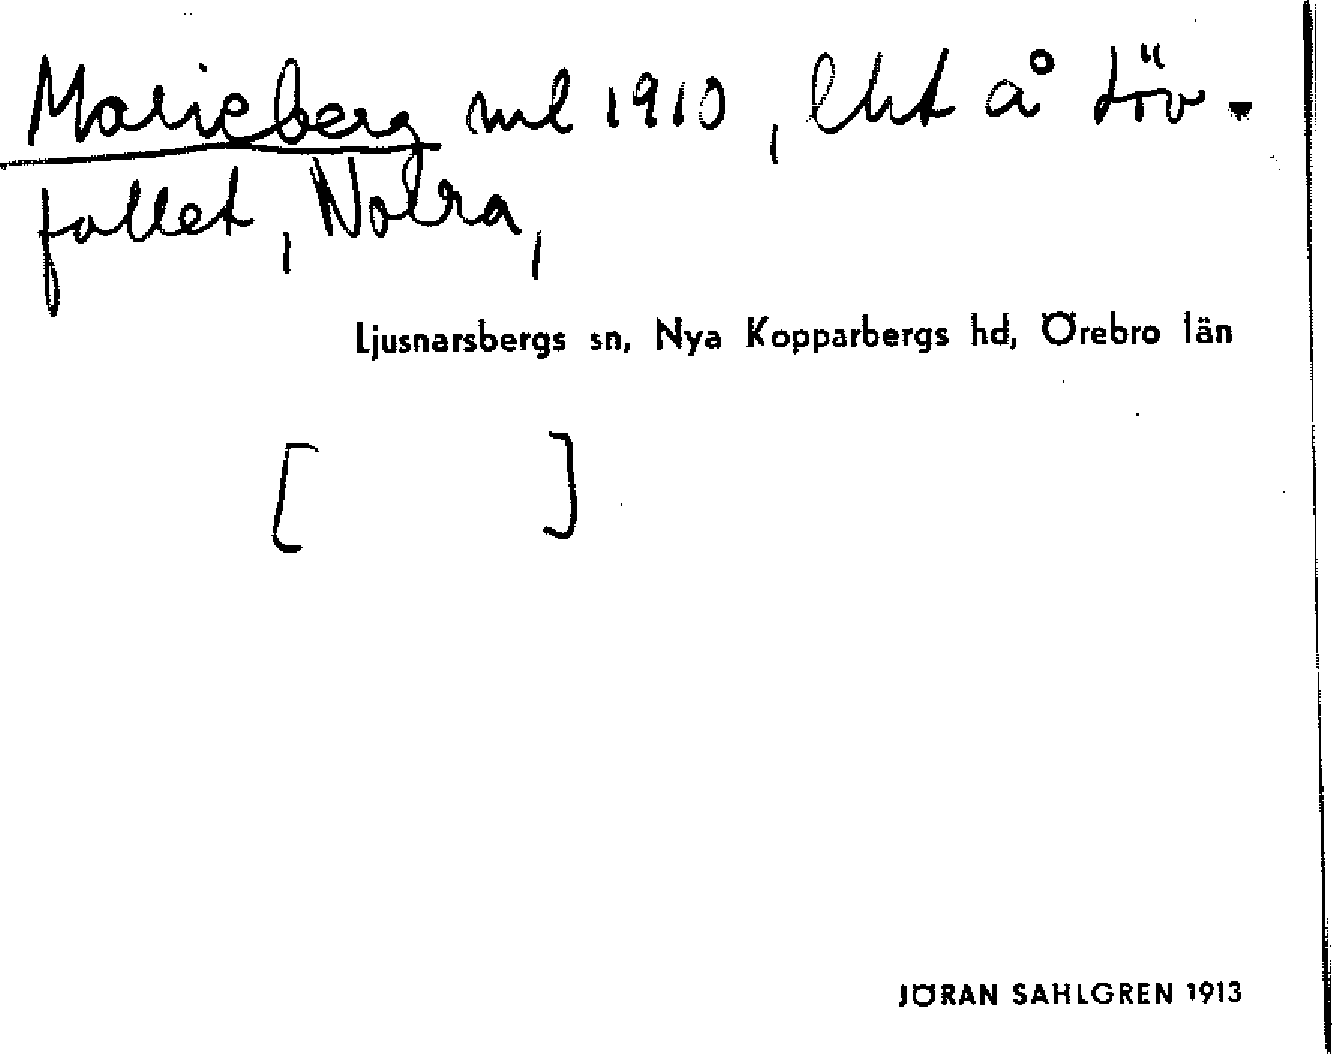 Marieberg ml 1910, lht å Löv-
fallet, Norra,
Ljusnarsbergs sn, Nya Kopparbergs hd, Örebro län
[ ]
JÖRAN SAHLGREN 1913